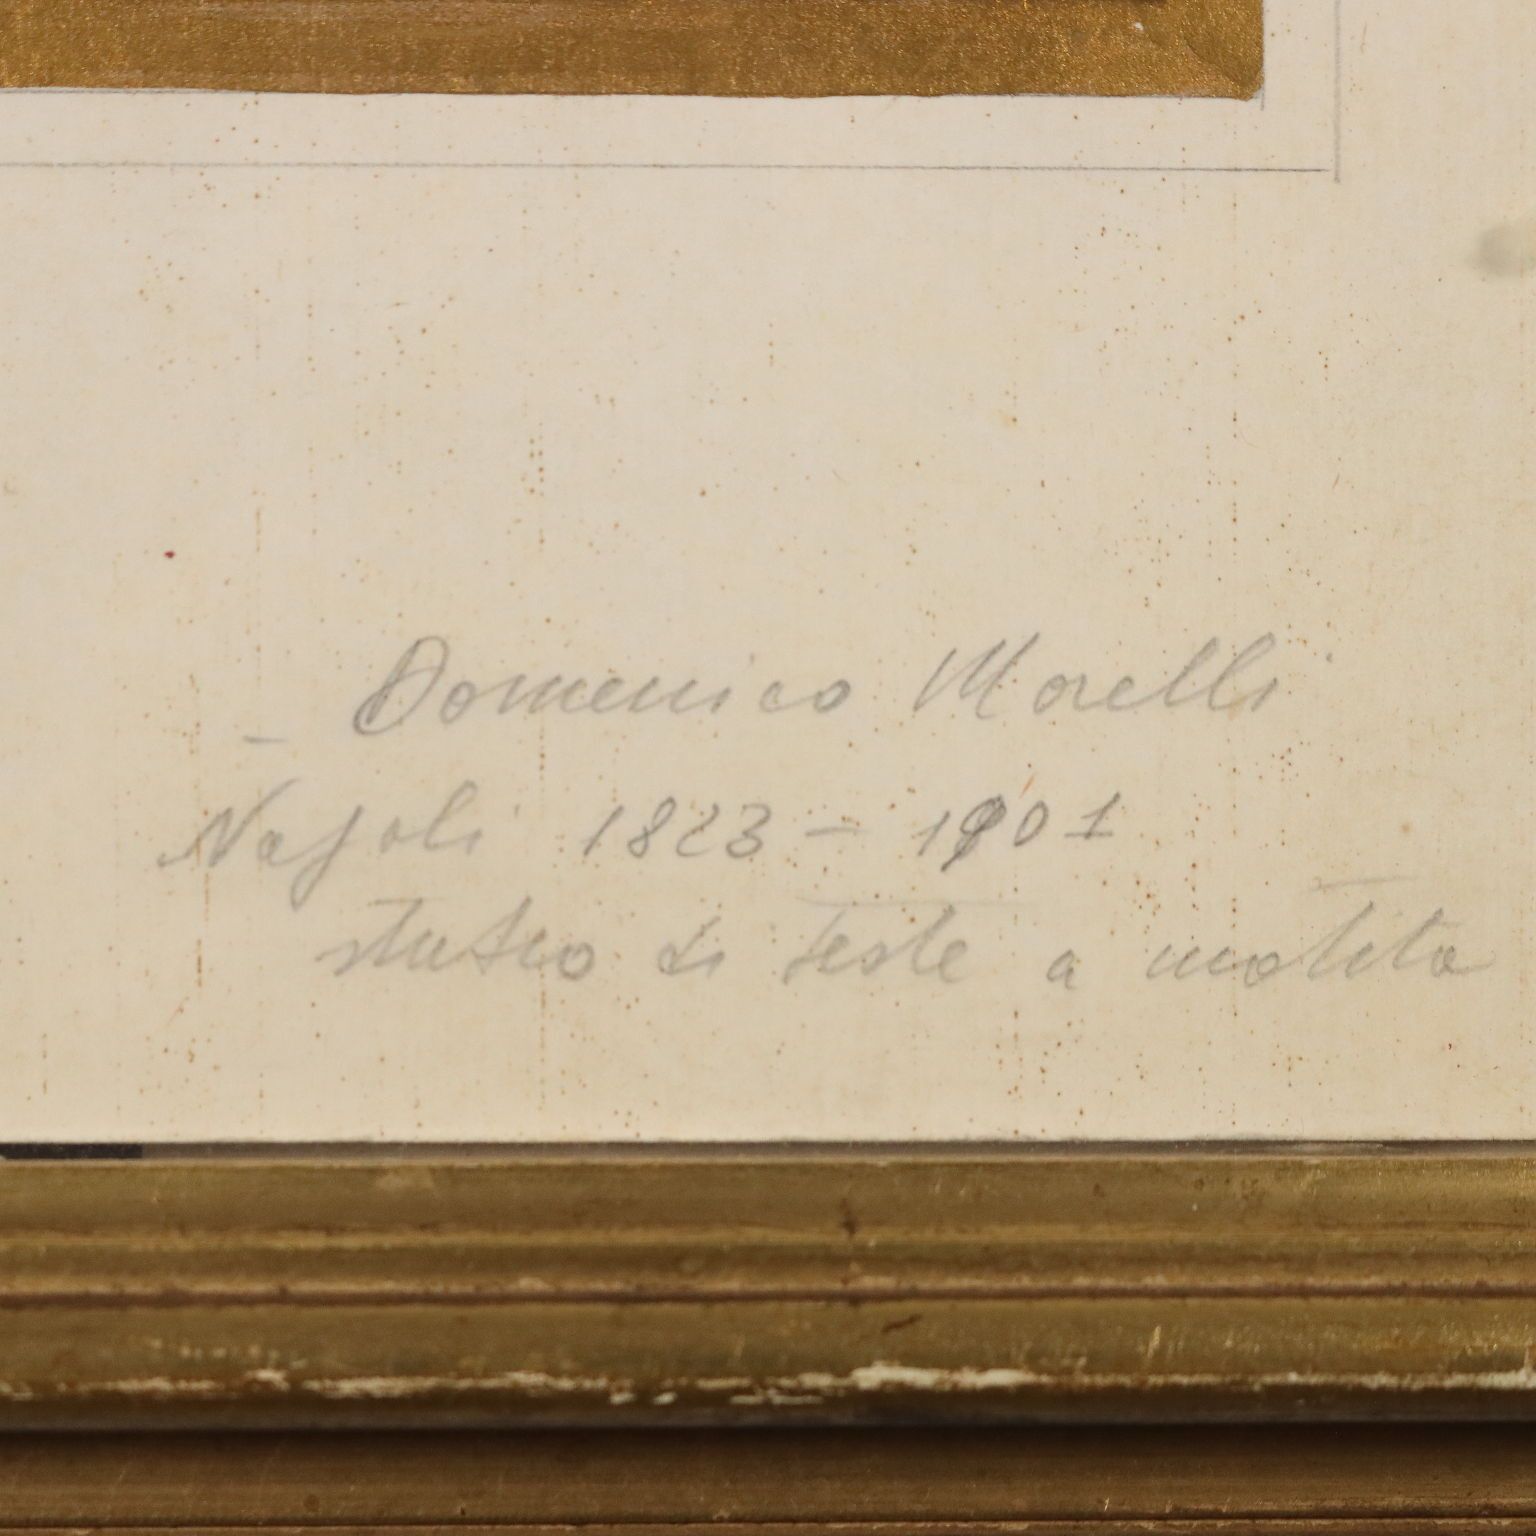 – Domenico Morelli
Napoli 1823 – 1901
studio di teste a matita